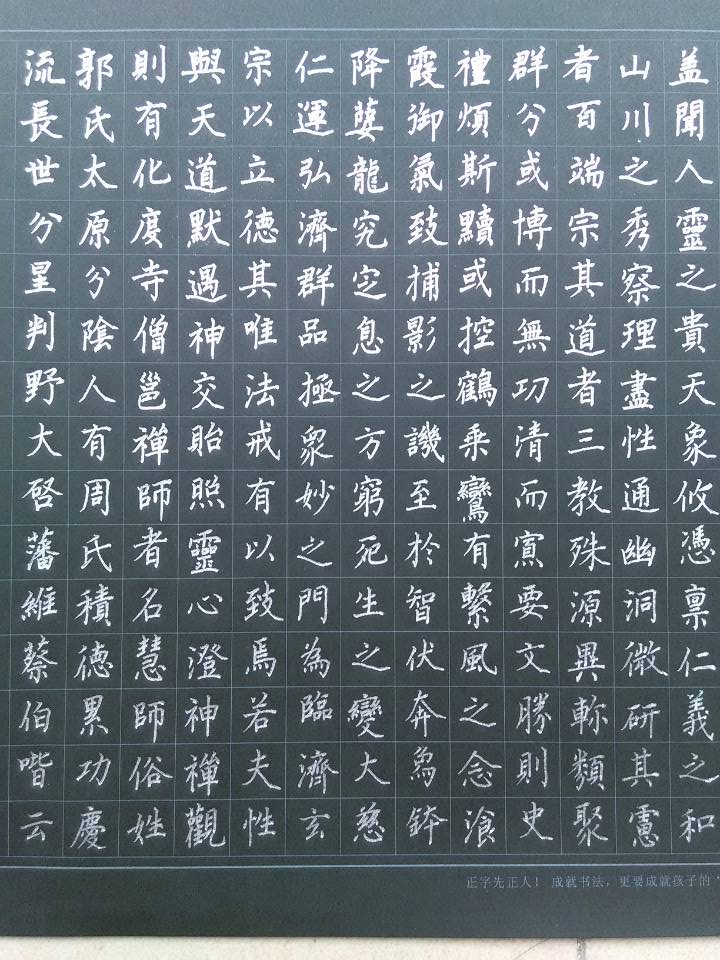 盖聞人靈之貴天象攸憑禀仁義之和
山川之秀察理盡性通幽洞微研其慮
者百端宗其道者三教殊源異軫類聚
群分或博而無功清而寡要文勝則史
禮煩斯黷或控鶴乘鸞有繫風之念飡
霞御氣致捕影之譏至於智伏奔象鉢
降孽龍究定息之方窮死生之變大慈
仁運弘濟群品極衆妙之門為臨濟玄
宗以立德其唯法戒有以致焉若夫性
與天道默遇神交貽照靈心澄神禪觀
則有化度寺僧邕禪師者名慧師俗姓
郭氏太原分陰人有周氏積德累功慶
流長世分星判野大啓藩維蔡伯喈云
正字先正人！ 成就书法，更要成就孩子的“